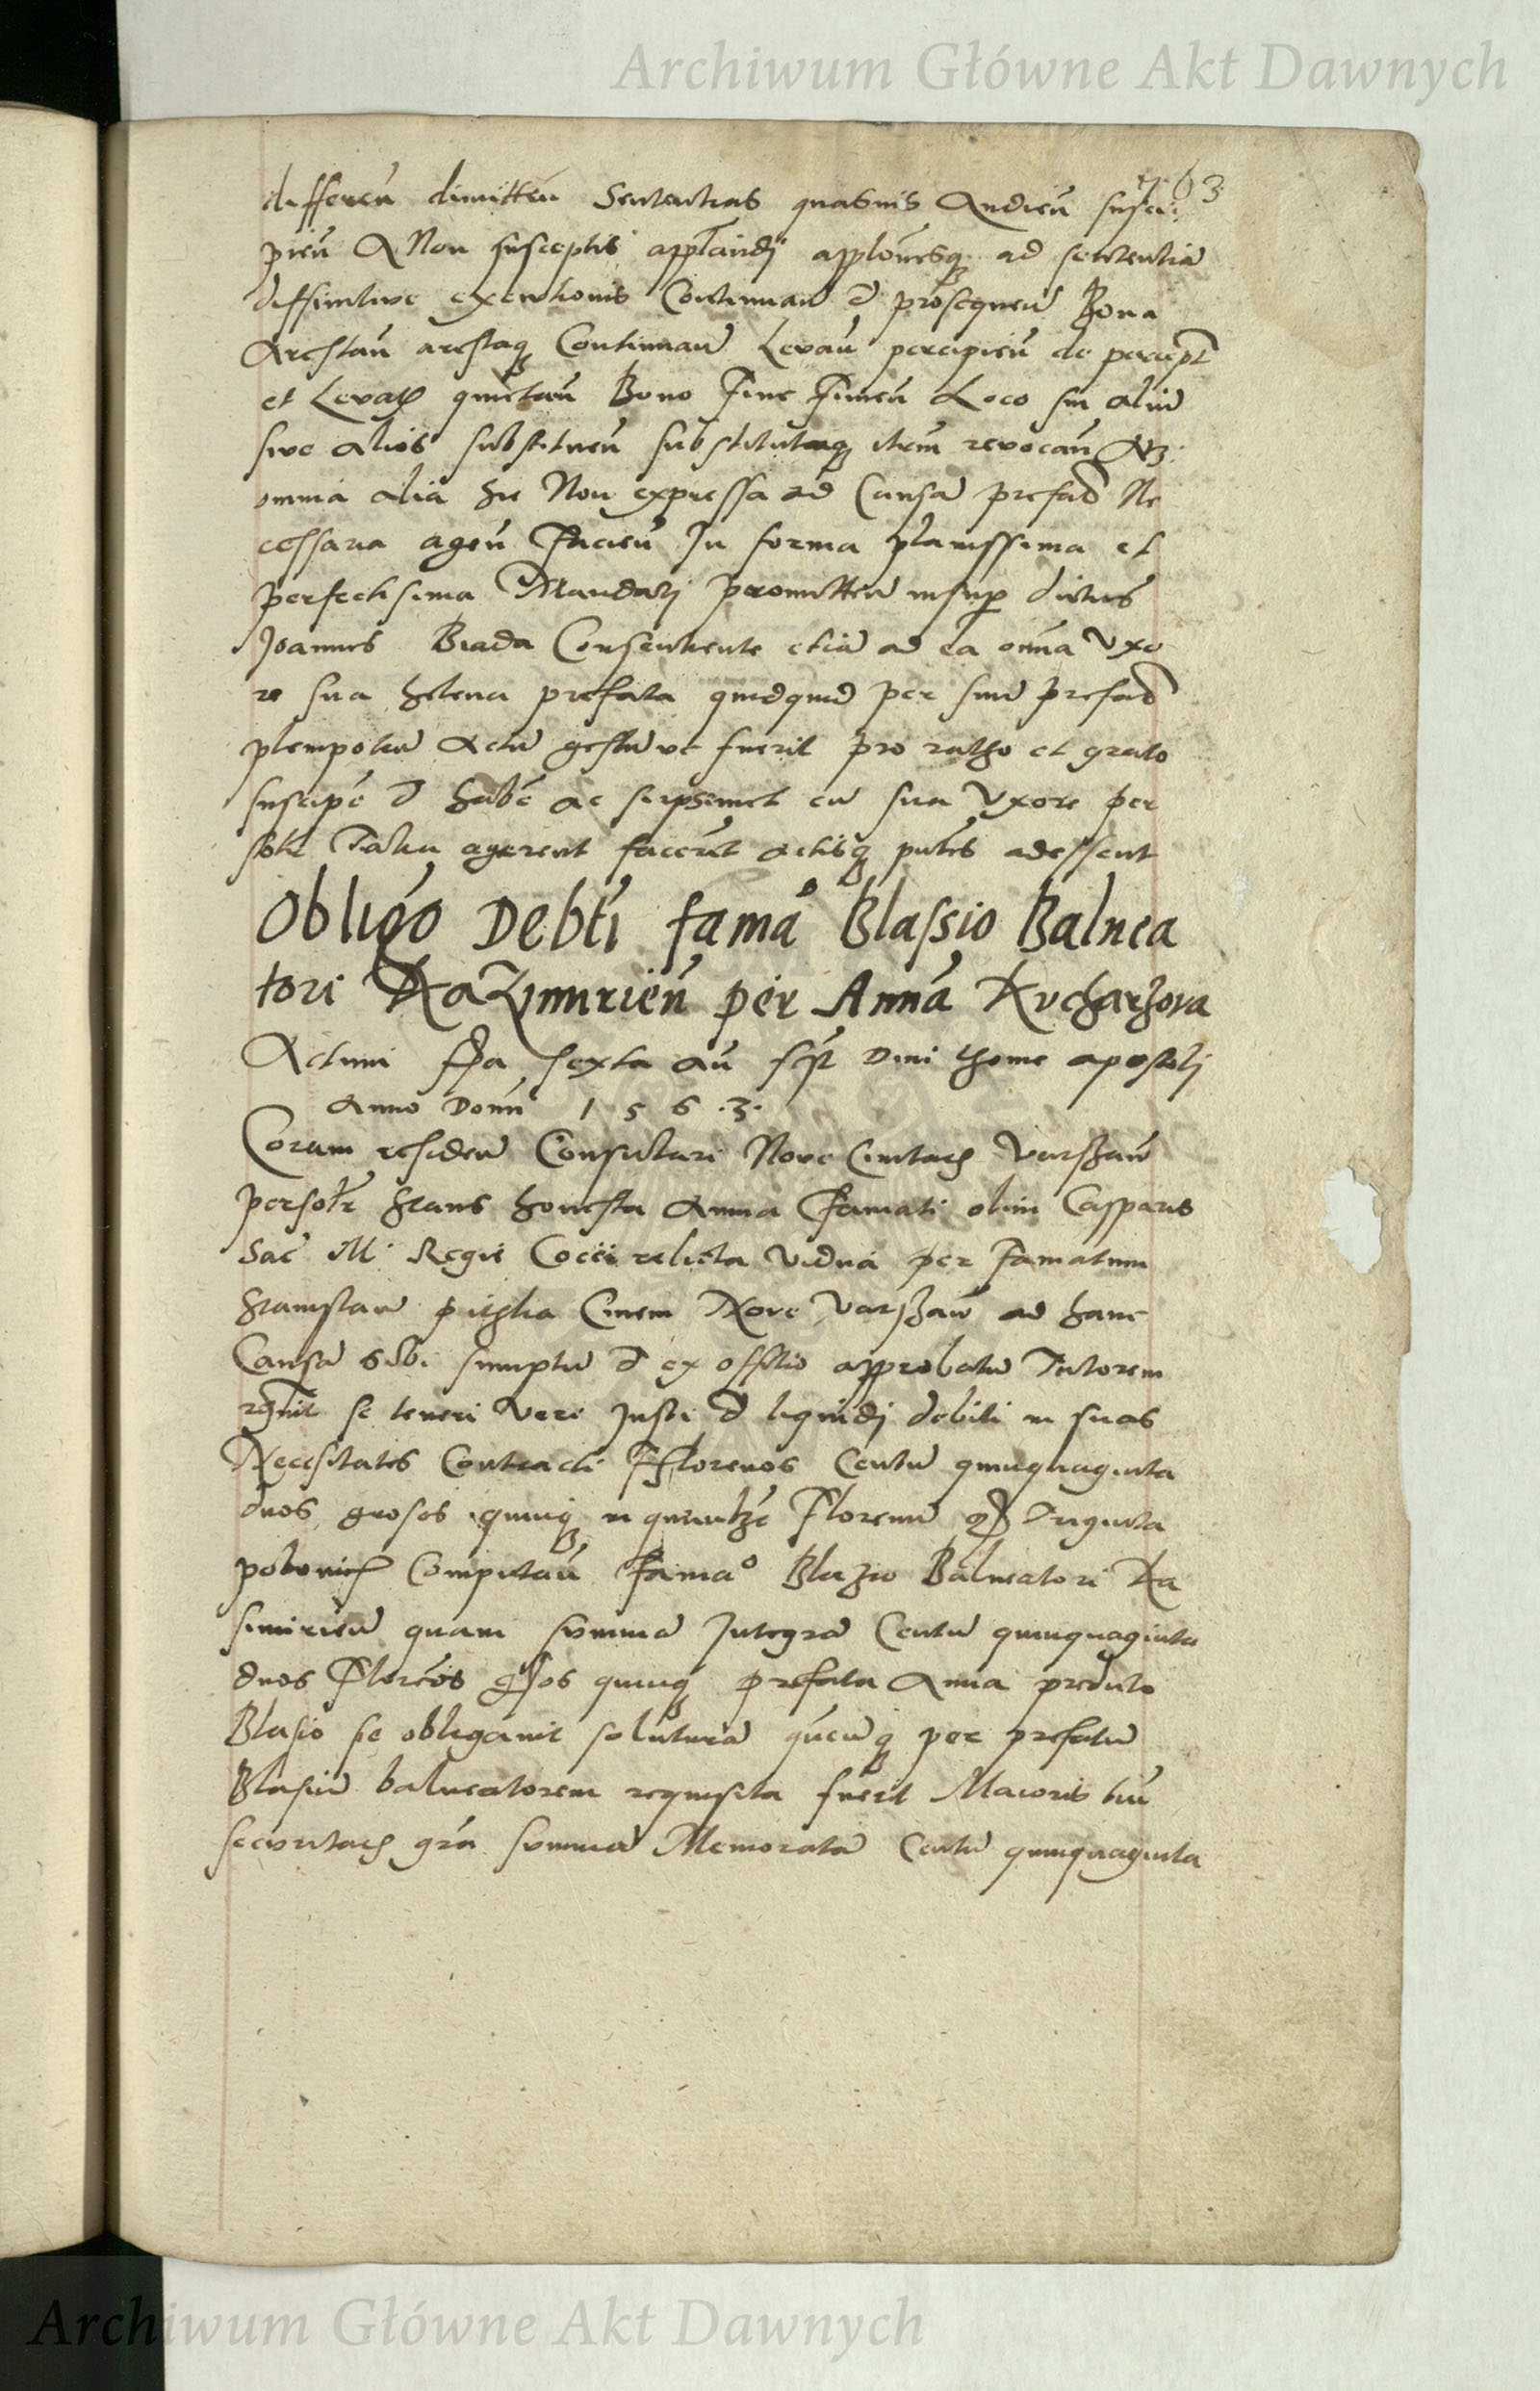 Archiwum Główne Akt Dawnych
763
differen̄ dimitten̄ Sententias quasuis Audien̄ susci:
pien̄ A Non susceptis applandj applonesq₃ ad sententiā
diffinitiue executionis Continuan̄ & prosequen̄ Bona
Arestan̄ arestaq₃ Continuan̄ Levan̄ percipien̄ de percept
et Levatis quietan̄ Bono Fine Finien̄ Loco sui aliū
sive alios substituen̄ substitutaq₃ item revocan̄
omnia alia hic Non expressa ad Causā prefad Ne
cessaria agen̄ Facien̄ In forma planissima et
perfectisima Mandatj promitten̄ insup dictus
Joannes Biada Consentiente etiā ad ea omīa Vxo
re sua helena prefata quidquid per suū prefad
plenipotē Actū gestūve fuerit pro ratho et grato
suscipē & habē ac seipsemet cū sua Vxore per
solr Tahn agerent facerēt actisq₃ pntēs adessent
Obligō Debti fama° Blassio Balnea
tori Kazimirien̄ per Annā Kvcharzova
Actum fria sexta an̄ fst Diui thome apostolj
Anno Domī 1 5 6 .3.
Coram residen̄ Consulari Noue Ciuitatis Varschaw̄
persolr stans honesta Anna Famati olim Casparis
Sac M. Regie Coci relicta Vidua per Famatum
Stanislaū Ciuem Nove Varschaw̄ ad hanc
Causā sibi sumptū & ex offitio approbatū Tutorem
rgnit se teneri Veri Justi & liquidj debiti in suas
Necesitates Contracti Florenos Centū quinquaginta
duos grosos quinq₃ in quēlibē Florenū gr Triginta
polonicis Computan̄ Fama° Blazio Balneatori Ka
simirien̄ quam summā Integrā Centū quinquaginta
duos Florēos grsos quinq₃ prefata Anna predicto
Blasio se obligauit soluturā qūcūq₃ per prefatū
Blasiū balneatorem requisita fuerit Maioris tn̄
securitatis grā summā Memoratā Centū quinquaginta
Archiwum Główne Akt Dawnych